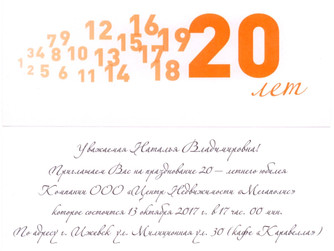 7 9 12 16 19 20
3 4 8 10 13 15 17
1 2 5 6 11 14 18
лет
Уважаемая Наталья Владимировна!
Приглашаем Вас на празднование 20 – летнего юбилея
Компании ООО «Центр Недвижимости «Мегаполис»
которое состоится 13 октября 2017 г. в 17 час. 00 мин.
По адресу г. Ижевск ул. Милиционная ул. 30 (кафе «Каравелла»)